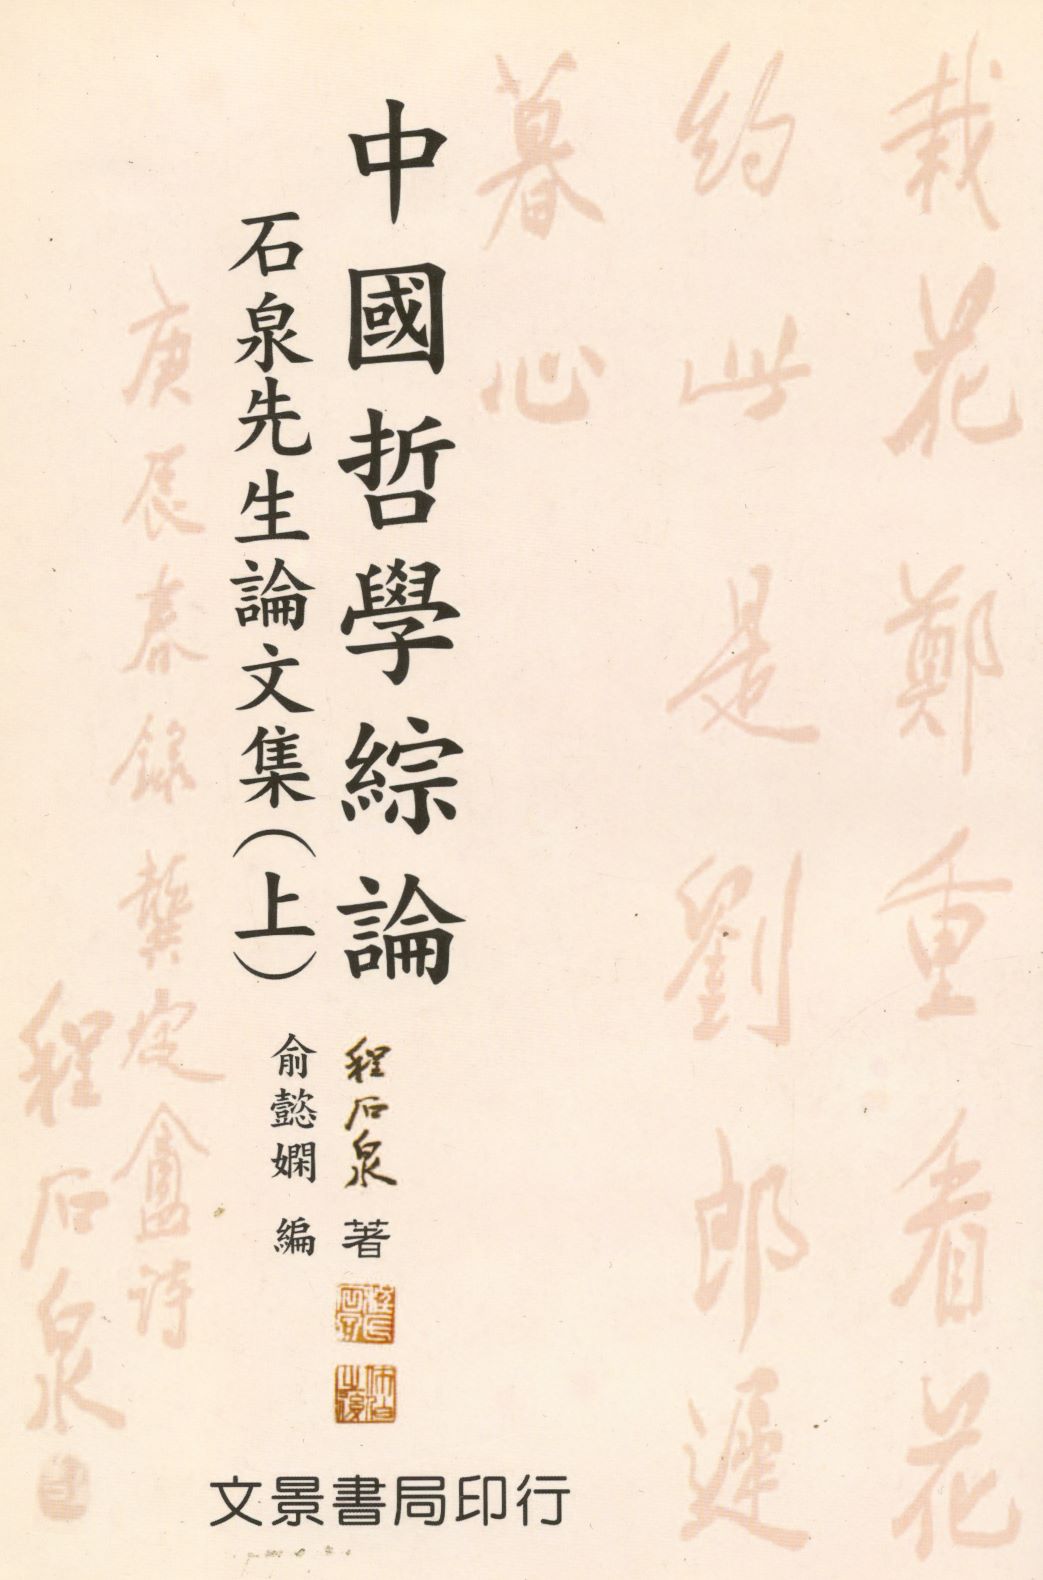 栽花鄭重看花
約此是劉郎遲
暮心
中國哲學綜論
程石泉著
石泉先生論文集(上)
俞懿嫻 編
庚辰春錄龔定盦詩
程石泉
文景書局印行